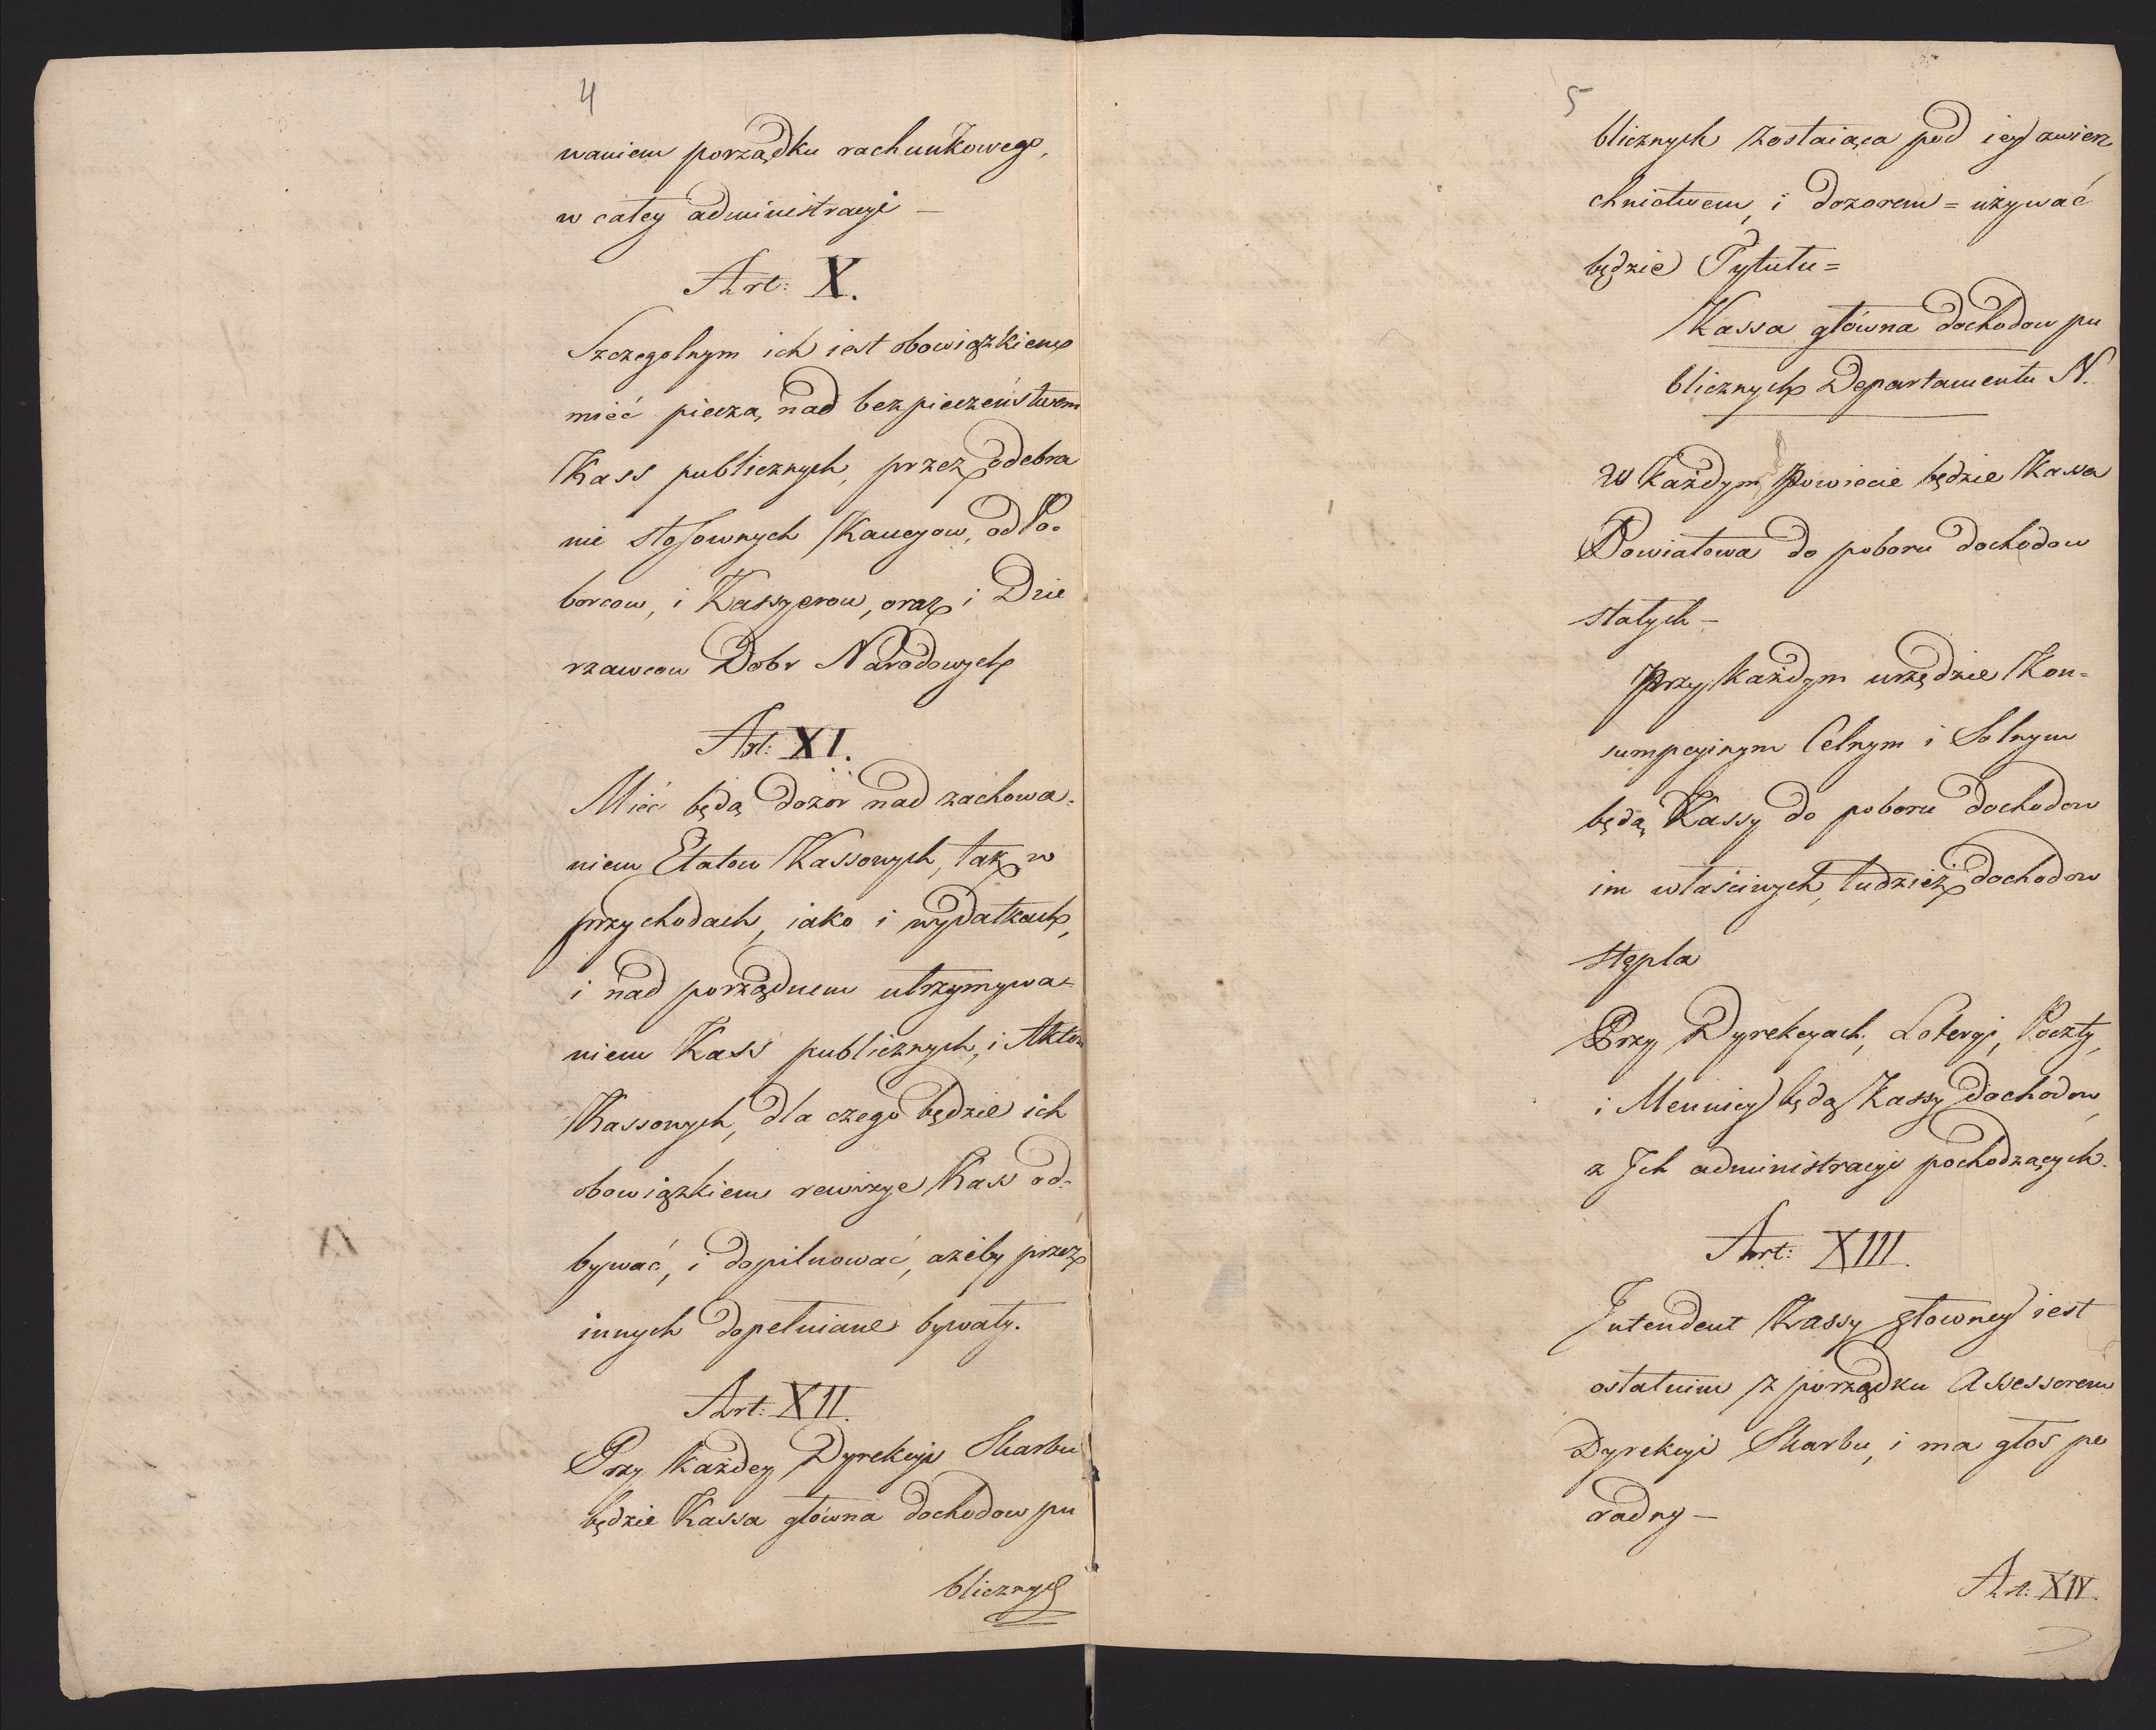 4
waniem porządku rachunkowego,
w całey administracyi —
Art: X.
Szczegolnym ich iest obowiązkiem
mieć pieczą nad bezpieczeństwem
Kass publicznych, przez odebra
nie stosownych Kaucyow, od Po-
borcow, i Kassyerow, oraz i Dzie
rzawcow Dobr Narodowych
Art: XI.
Mieć będą dozor nad zachowa-
niem Etatow Kassowych, tak w
przychodach, iako i wydatkach,
i nad porządnem utrzymywa-
niem Kass publicznych, i Aktow
Kassowych, dla czego będzie ich
obowiązkiem rewizye Kass od-
bywać, i dopilnować, ażeby przez
innych dopełniane bywały.
Art: XII.
Przy każdey Dyrekcyi Skarbu
będzie Kassa główna dochodow pu
blicznych
5
blicznych zostaiąca pod iey zwierz
chnictwem, i dozorem = używać
będzie Tytułu =
Kassa główna dochodow pu
blicznych Departamentu N.
w każdym Powiecie będzie Kassa
Powiatowa do poboru dochodow
stałych —
Przy każdym urzędzie Kon-
sumpcyinym Celnym i Solnym
będą Kassy do poboru dochodow
im właściwych, tudzież dochodow
stępla
Przy Dyrekcyach, Loteryi, Poczty,
i Mennicy będą Kassy dochodow
z Ich administracyi pochodzących.
Art: XIII.
Intendent Kassy głowney iest
ostatnim z porządku Assessorem
Dyrekcyi Skarbu, i ma głos po
radny —
Art: XIV.